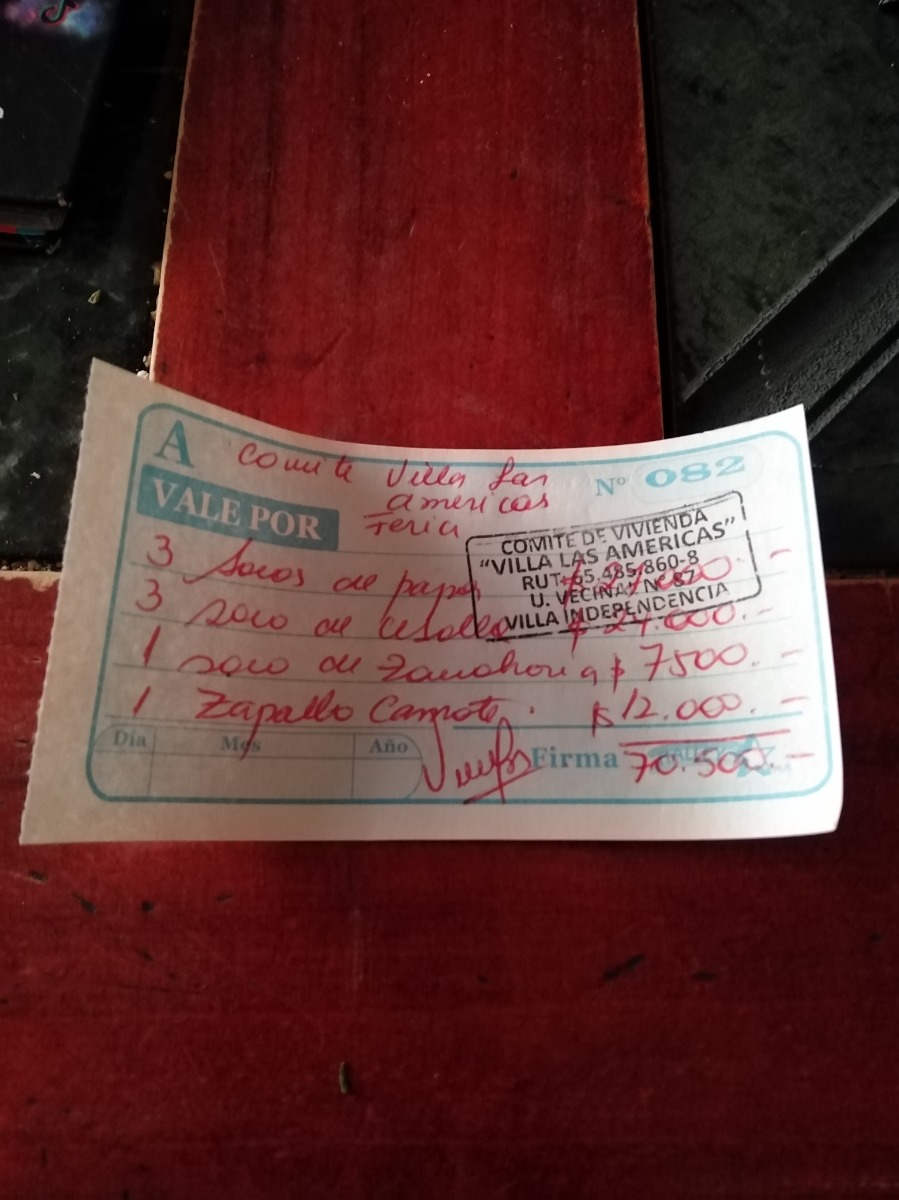 A Comite Villa las
Nº 082
americas
VALE POR
Feria
COMITE DE VIVIENDA
"VILLA LAS AMERICAS"
RUT: 65.485.860-8
U. VECINAL Nº 87
VILLA INDEPENDENCIA
3 Sacos de papas $ 27.000.-
3 saco de cebolla $ 24.000.-
1 saco de Zanahoria $ 7500.-
1 Zapallo Camote. $ 12.000.-
Día Mes Año Firma 70.500.-